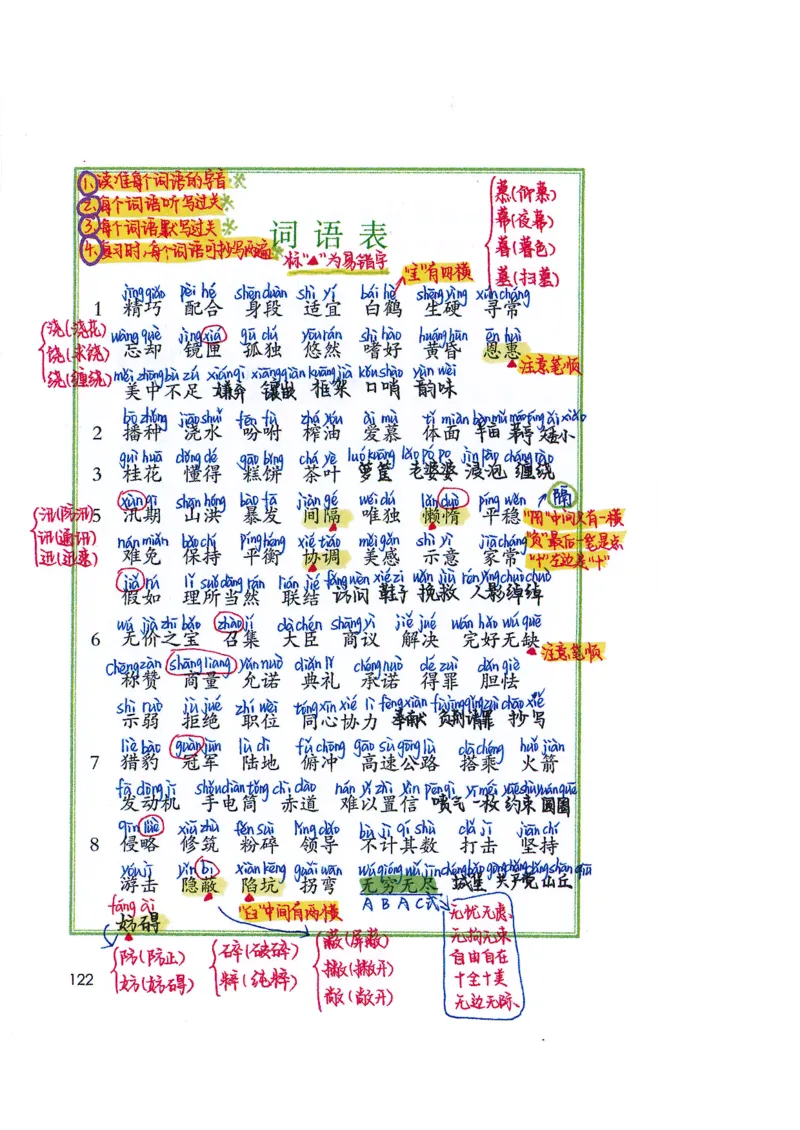 1、读准每个词语的字音
2、每个词语听写过关
3、每个词语默写过关
4、复习时,每个词语可抄写两遍
词语表
标“▲”为易错字
慕(仰慕)
幕(夜幕)
暮(暮色)
墓(扫墓)
“隹”有四横
jīng qiǎo pèi hé shēn duàn shì yí bái hè shēng yìng xún cháng
1 精巧 配合 身段 适宜 白鹤 生硬 寻常
浇(浇花)
饶(求饶)
绕(缠绕)
wàng què jìng xiá gū dú yōu rán shì hào huáng hūn ēn huì
忘却 镜匣 孤独 悠然 嗜好 黄昏 恩惠
注意笔顺
měi zhōng bù zú xián qì xiāng qiàn kuàng jià kǒu shào yùn wèi
美中不足 嫌弃 镶嵌 框架 口哨 韵味
2 播种 浇水 吩咐 榨油 爱慕 体面 亩 矮小
guì huā dǒng dé gāo bǐng chá yè luó kuāng lǎo pó po jìn pào chán rào
3 桂花 懂得 糕饼 茶叶 箩筐 老婆婆 浸泡 缠绕
隔
汛(防汛)
讯(通讯)
迅(迅速)
xùn qī shān hóng bào fā jiàn gé wéi dú lǎn duò píng wěn
5 汛期 山洪 暴发 间隔 唯独 懒惰 平稳
“隔”中间只有一横
nán miǎn bǎo chí píng héng xié tiáo měi gǎn shì yì jiā cháng
难免 保持 平衡 协调 美感 示意 家常
“负”最后一笔是点
“十”左边是“十”
jiǎ rú lǐ suǒ dāng rán lián jié fǎng wèn xié zi wǎn jiù rén yǐng chuò chuò
假如 理所当然 联结 访问 鞋子 挽救 人影绰绰
wú jià zhī bǎo zhào jí dà chén shāng yì jiě jué wán hǎo wú quē
6 无价之宝 召集 大臣 商议 解决 完好无缺
注意笔顺
chēng zàn shāng liang yǔn nuò diǎn lǐ chéng nuò dé zuì dǎn qiè
称赞 商量 允诺 典礼 承诺 得罪 胆怯
shì ruò jù jué zhí wèi tóng xīn xié lì fèng xiàn fù jīng qǐng zuì chāo xiě
示弱 拒绝 职位 同心协力 奉献 负荆请罪 抄写
liè bào guàn jūn lù dì fǔ chōng gāo sù gōng lù dā chéng huǒ jiàn
7 猎豹 冠军 陆地 俯冲 高速公路 搭乘 火箭
fā dòng jī shǒu diàn tǒng chì dào nán yǐ zhì xìn pēn qì yì méi yuē shù yuán quān
发动机 手电筒 赤道 难以置信 喷气 一枚 约束 圆圈
qīn lüè xiū zhù fěn suì lǐng dǎo bú jì qí shù dǎ jī jiān chí
8 侵略 修筑 粉碎 领导 不计其数 打击 坚持
yóu jī yǐn bì xiàn kēng guǎi wān wú qióng wú jìn chéng bǎo gòng chǎn dǎng shān qiū
游击 隐蔽 陷坑 拐弯 无穷无尽 城堡 共产党 山丘
fáng ài
妨碍
“臼”中间有两横
ABAC式
无忧无虑、
无拘无束
自由自在
十全十美
无边无际、
122
防(防止)
妨(妨碍)
碎(破碎)
粹(纯粹)
蔽(屏蔽)
撇(撇开)
敞(敞开)